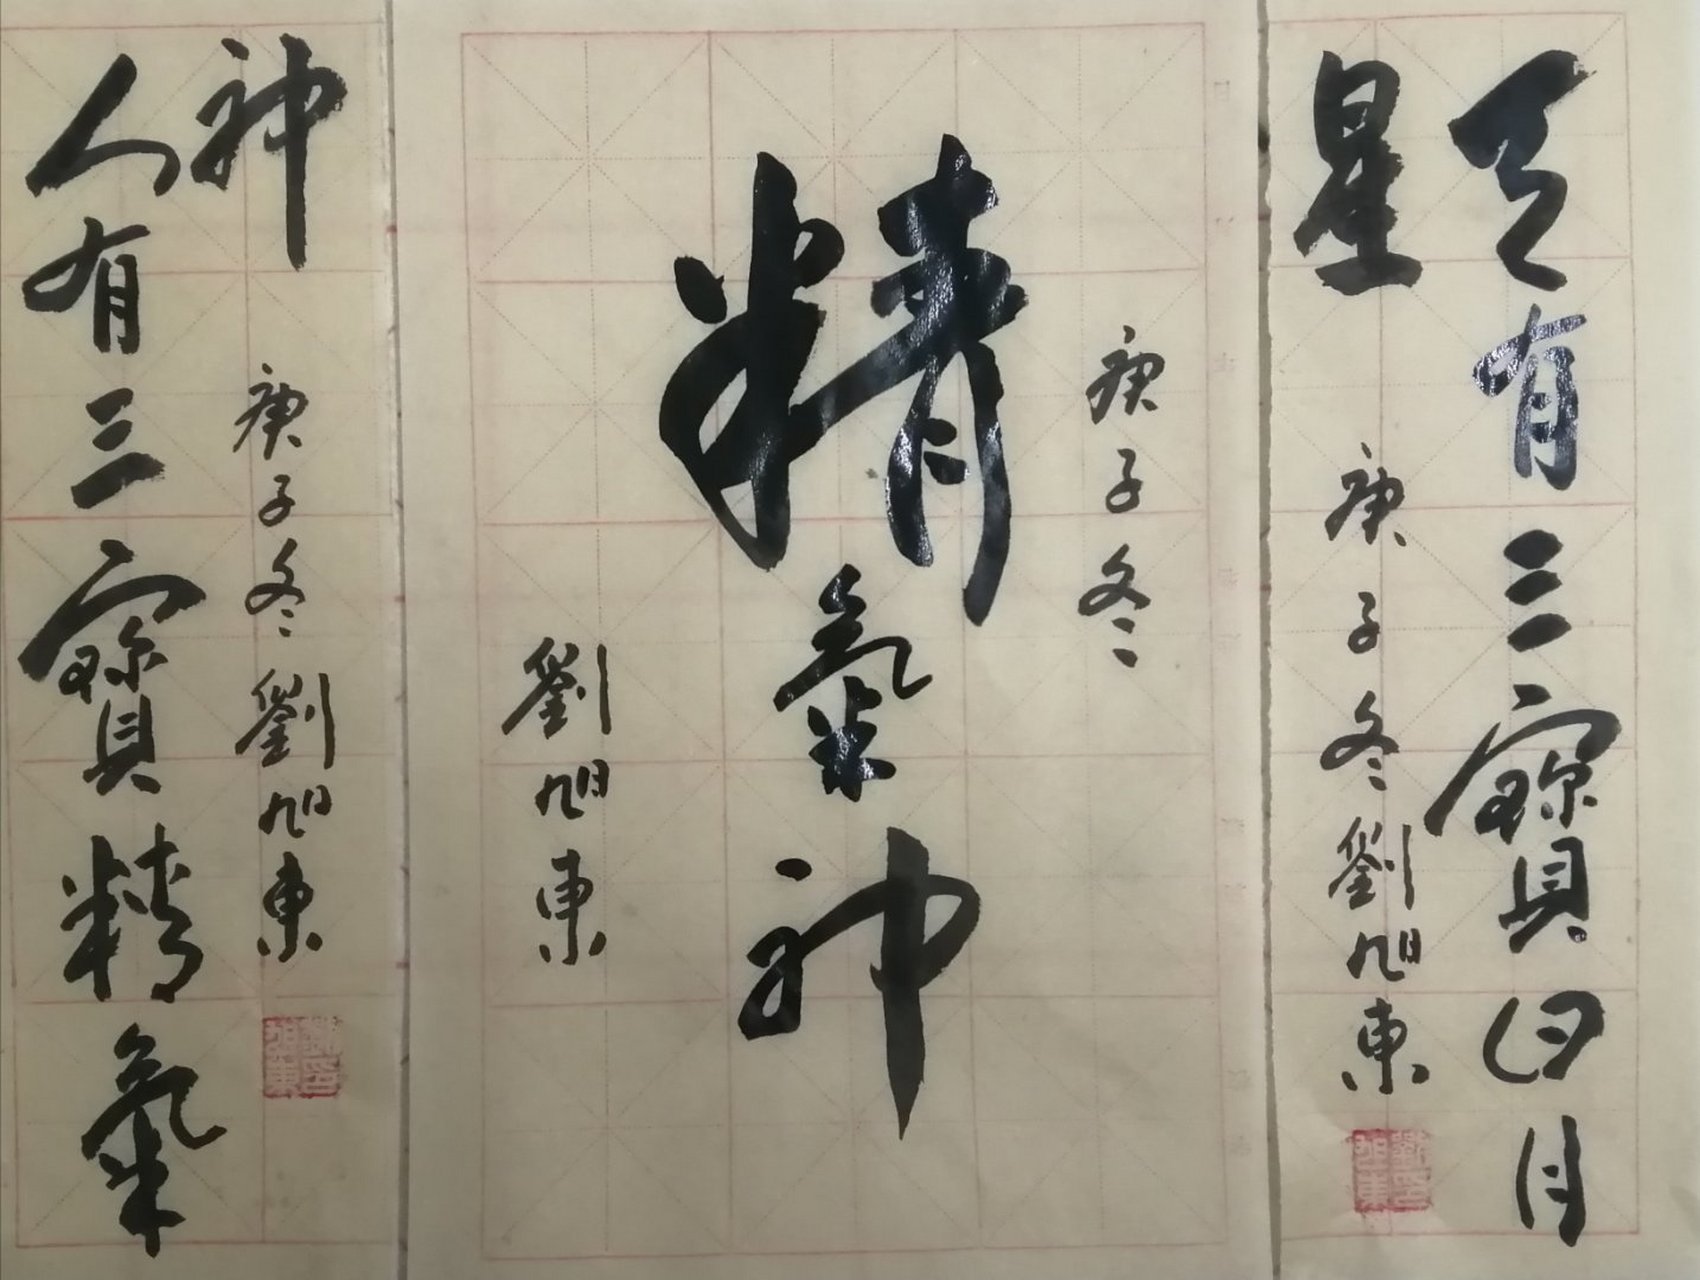 天有三寶日月
星
庚子冬劉旭東
劉印旭東
庚子冬
精氣神
劉旭東
人有三寶精氣
神
庚子冬劉旭東
劉印旭東